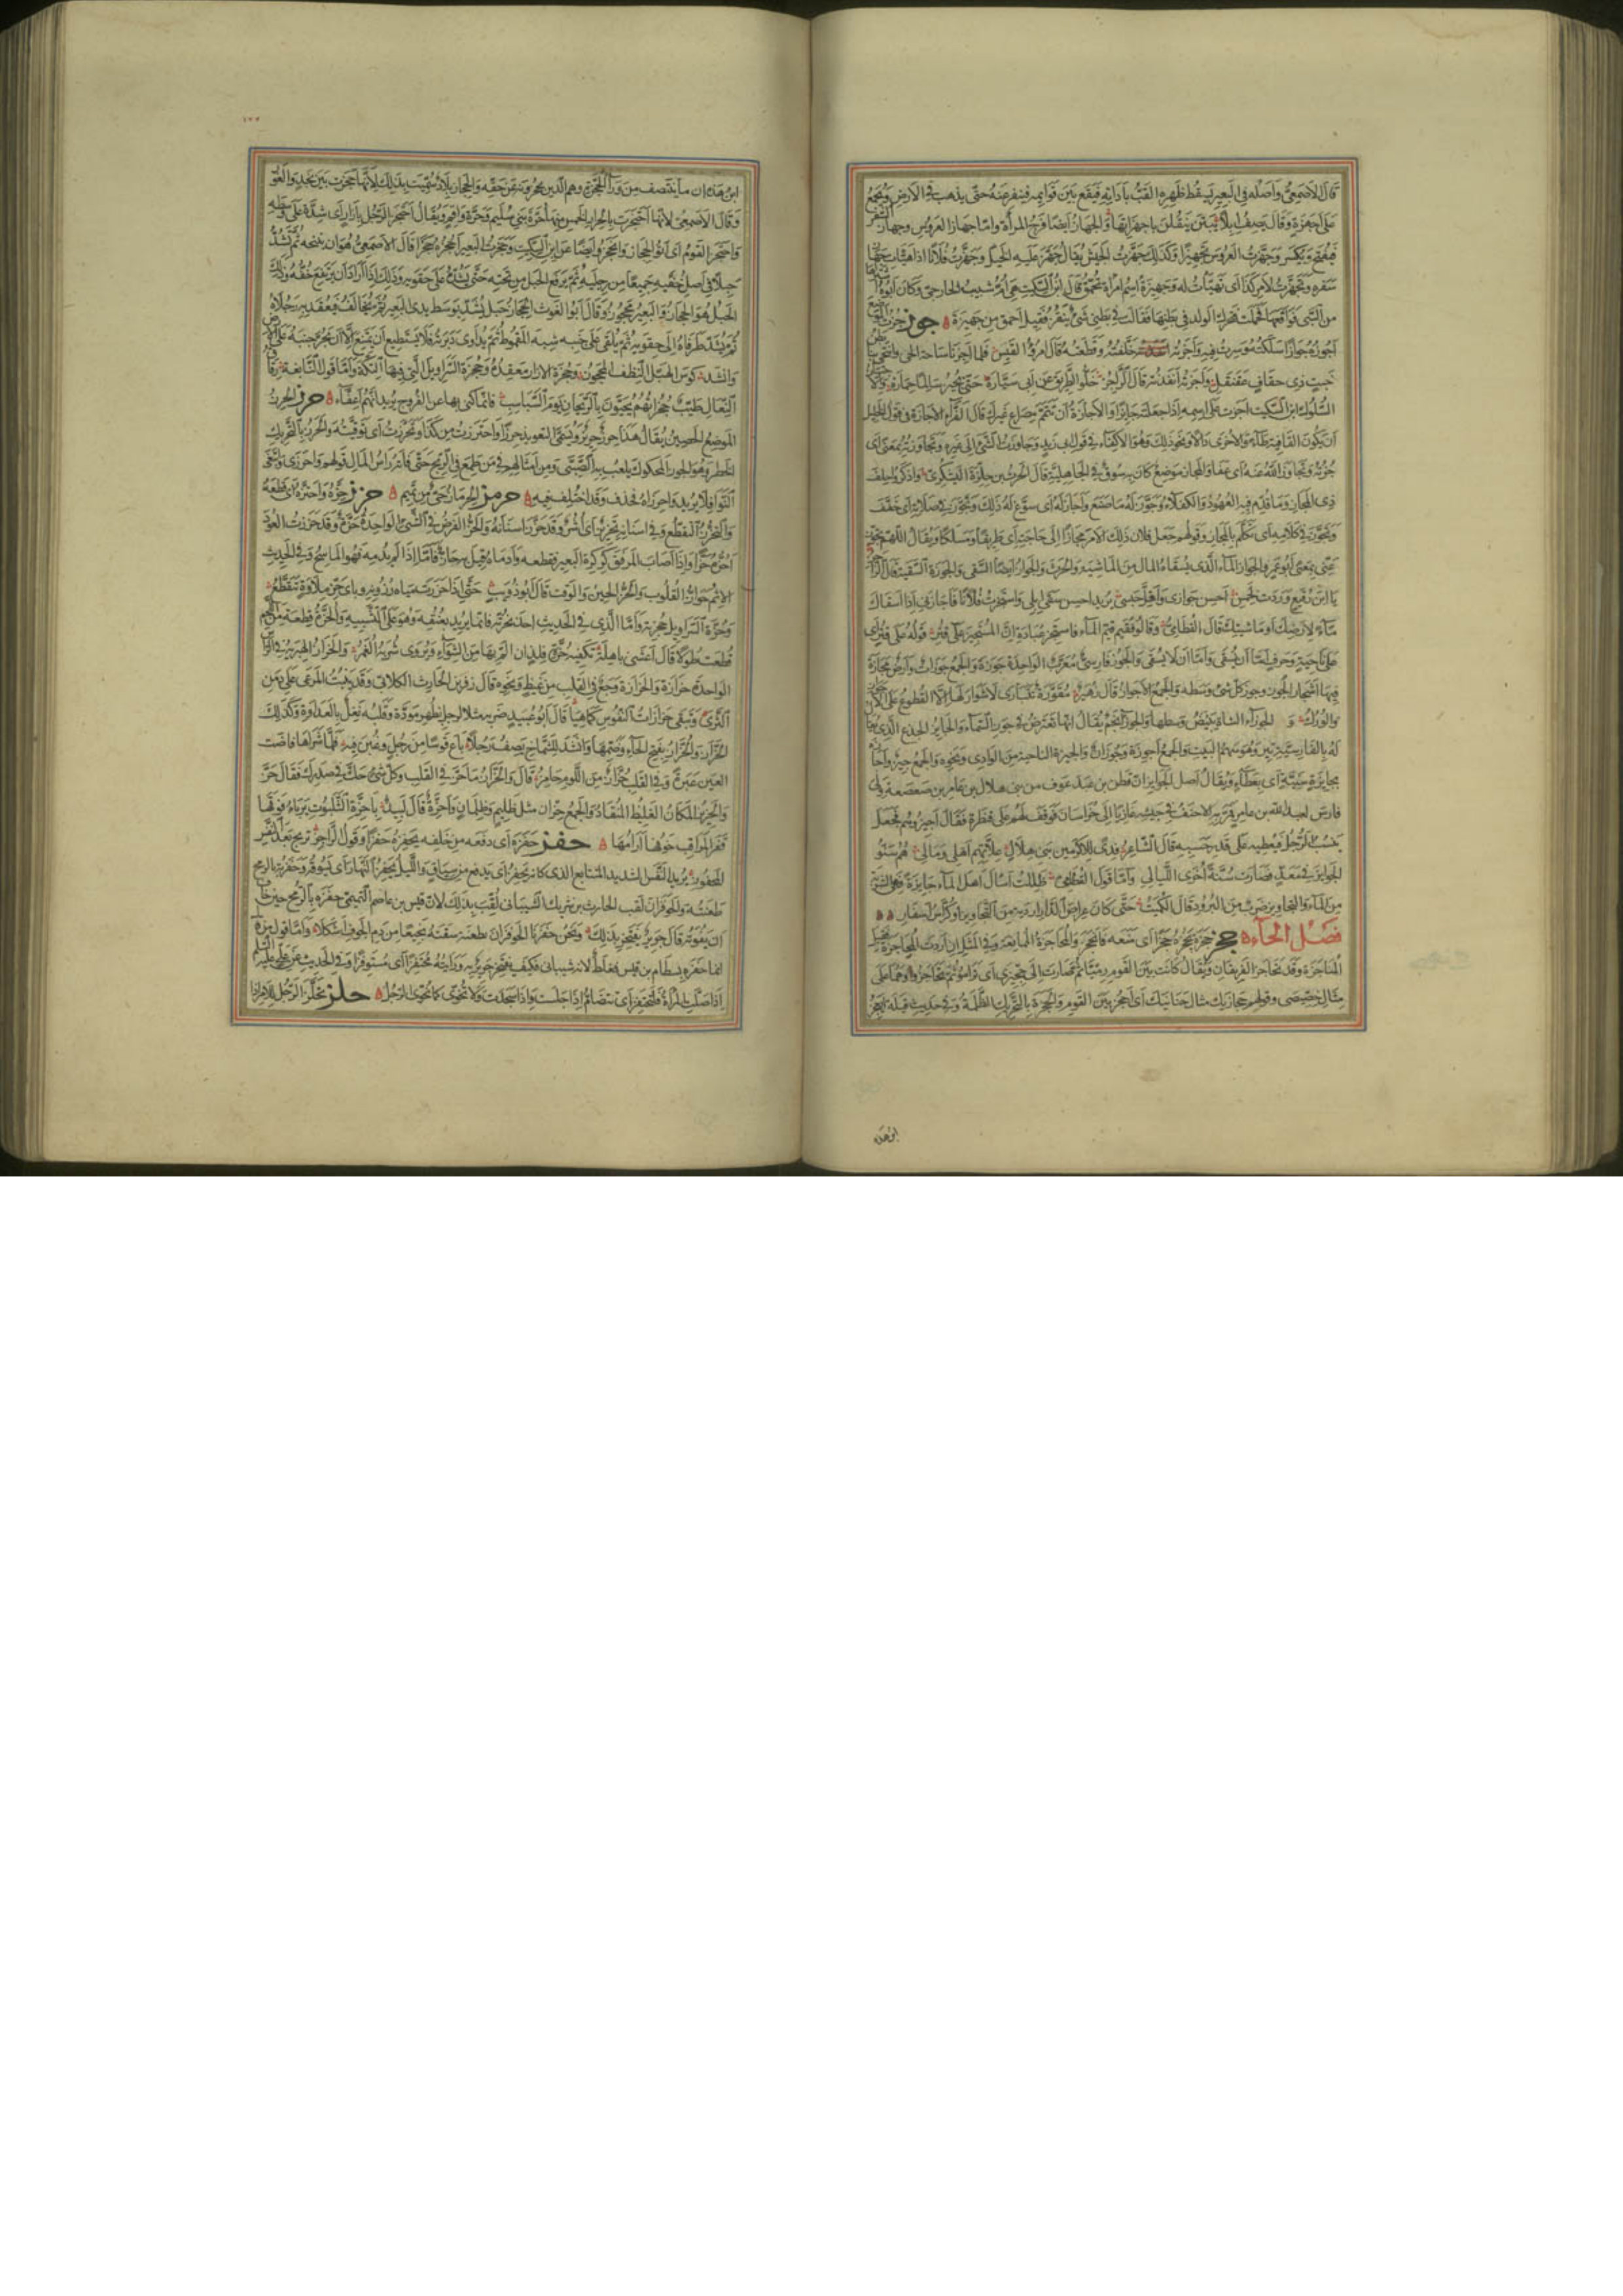 قال الاصمعي واصله في البعير يسقط ظهره القتب باداته فيقع بين قوائمه فينفر منه حتى يذهب في الارض ويجمع
على اجهزة وقال يصف ابلا يبتن ينقلن باجهزاتها والجهاز ايضا فرج المراة واما جهاز العروس وجهاز السفر
فيفتح ويكسر وجهزت العروس تجهيزا وكذلك جهزت الجيش يقال جهز عليه الخيل وجهزت فلانا اذا هيات جهاز
سفره وتجهزت لامر كذا اى تهيات له وجهيزة اسم امراة تحمق قال ابن السكيت هى ام شبيب الخارجى وكان ابوه
من السبى فواقعها فحملت فتحرك الولد في بطنها فقالت في بطنى شىء ينقز فقيل احمق من جهيزة جوز جزت الموضع
اجوزه جوازا سلكته وسرت فيه واجزته خلفته وقطعته وقال امرؤ القيس فلما اجزنا ساحة الحى وانتحى بنا بطن
خبت ذى حقاف عقنقل واجزته انفذته قال الراجز خلوا الطريق عن ابى سياره حتى يجيز سالما حماره
السلوك ابن السكيت اجزت على اسمه اذا جعلته جائزا والاجازة ان تتم مصراع غيرك قال الفراء الاجازة في قول الخليل
ان تكون القافية طاء والاخرى دالا ونحو ذلك وهو الاكفاء في قول ابى زيد وجاوزت الشىء الى غيره وتجاوزته بمعنى اى
جزته وتجاوز الله عنه اى عفا وذو المجاز موضع كان به سوق في الجاهلية قال الحرث بن حلزة اليشكرى واذكروا حلف
ذى المجاز وما قدم فيه العهود والكفلاء وجوز له ما صنع واجاز له اى سوغ له ذلك وتجوز في صلاته اى خفف
وتجوز في كلامه اى تكلم بالمجاز وقولهم جعل فلان ذلك الامر مجازا الى حاجته اى طريقا ومسلكا ويقال اللهم تجوز
عنى بمعنى ابو عمرو الجواز الماء الذى يسقاه المال من الماشية والحرث والجواز ايضا السقى والجوزة السقية قال الراجز
يا ابن رقيع وردت لخمس احسن جوازى واقل حبسى يريد احسن سقى ابلى واستجزت فلانا فاجازنى اذا اسقاك
ماء لارضك او ماشيتك قال القطامى وقالوا فقيم قيم الماء فاستجز عبادة ان المستجيز على قتر قوله على قتر اى
على ناحية وحرف اما ان يسقى واما ان لا يسقى والجوز فارسى معرب الواحدة جوزة والجمع جوزات وارض مجازة
فيها اشجار الجوز وجوز كل شىء وسطه والجمع الاجواز قال زهير مقورة تتبارى لا شوار لها الا القطوع على الاكوار
والورك و الجوزاء الشاة يبيض وسطها والجوزاء نجم يقال انها تعترض في جوز السماء والجائز الجذع الذى يقال
له بالفارسية تير وهو سهم البيت والجمع اجوزة وجوزان والجيزة الناحية من الوادى ونحوه والجمع جيز واجازه
بجائزة سنية اى بعطاء ويقال اصل الجوائز ان قطن بن عبد عوف من بنى هلال بن عامر بن صعصعة ولى
فارس لعبد الله بن عامر فمر به الاحنف في جيشه غازيا الى خراسان فوقف لهم على قنطرة فقال اجيزوهم فجعل
ينسب الرجل فيعطيه على قدر حسبه قال الشاعر فدى للاكرمين بنى هلال علاتهم اهلى ومالى هم سنوا
الجوائز في معد فصارت سنة اخرى الليالى واما قول القطامى ظللت اسال اهل الماء جائزة فهى الشربة
من الماء والتجاويز ضرب من البرود قال الكميت حتى كان عراص الدار اردية من التجاويز او كراس اسفار
فصل الحاء حجز حجزه يحجزه حجزا اى منعه فانحجز والمحاجزة الممانعة وفي المثل ان اردت المحاجزة فقبل
المناجزة وقد تحاجز الفريقان ويقال كانت بين القوم رميا ثم صارت الى حجيزى اى تراموا ثم تحاجزوا وهما على
مثال خصيصى وقولهم حجازيك مثال حنانيك اى احجز بين القوم والحجزة بالتحريك الظلمة وفي حديث قيلة ايعجز
ابن هذه
ابن هذه ان ينتصف من وراء الحجزة وهم الذين يحجزونه عن حقه والحجاز بلاد سميت بذلك لانها حجزت بين نجد والغور
وقال الاصمعى لانها احتجزت بالحرار الخمس منها حرة بنى سليم وحرة واقم ويقال احتجز الرجل بازار اى شده على وسطه
واحتجز القوم اى اتوا الحجاز وانحجزوا ايضا عن ابن السكيت وحجزت البعير احجزه حجزا قال الاصمعى هو ان ينيخه ثم يشد
حبلا في اصل خفيه جميعا من رجليه ثم يرفع الحبل من تحته حتى يشده على حقويه وذلك اذا اراد ان يرتفع خفه وذلك
الحبل هو الحجاز والبعير محجوز وقال ابو الغوث الحجاز حبل يشد بوسط يدى البعير ثم يخالف فيعقد به رجلاه
ثم يشد طرفاه الى حقويه ثم يلقى على جنبه شبه المقموط ثم يداوى دبرته فلا يستطيع ان يمتنع الا ان يجر جنبه على الارض
وانشد كوس الهبل النطف المحجوز وحجزة الازار معقده وحجزة السراويل التى فيها التكة واما قول النابغة رقاق
النعال طيب حجزاتهم يحيون بالريحان يوم السباسب فانما كنى بها عن الفروج يريد انهم اعفاء حرز الحرز
الموضع الحصين يقال هذا حرز حريز ويسمى التعويذ حرزا واحترزت من كذا وتحرزت اى توقيته والحرز بالتحريك
الخطر وهو الجوز المحكوك يلعب به الصبى ومن امثالهم في من طمع في الربح حتى فاته راس المال قولهم واحرزى وابتغى
النوافلا يريد واحرزاه فحذف وقد اختلف فيه حرمز الحرماز حى من تميم حزز حزه واحتزه اى قطعه
والتحزز التقطع وفي اسنانه تحزيز اى اشر وقد حزز اسنانه والحز الفرض في الشىء الواحدة حزة وقد حززت العود
احزه حزا واذا اصاب المرفق كركرة البعير فقطعه وادماه قيل به حاز فاما اذا لم يدمه فهو الماسح وفي الحديث
الاثم حواز القلوب والحز الحين والوقت قال ابو ذويب حتى اذا حززت مياه رزونه وباى حز ملاوة تتقطع
وحزة السراويل حجزته واما الذى في الحديث اخذ بحزته فانما يريد بعنقه وهو على التشبيه والحزة قطعة من اللحم
قطعت طولا قال اعشى باهلة تكفيه حزة فلذان الم بها من الشواء ويروى شربه الغمر والحزاز الهبرية في الراس
الواحدة حزازة والحزازة وجع في القلب من غيظ ونحوه قال زفر بن الحارث الكلابى وقد ينبت المرعى على دمن
الثرى وتبقى حزازات النفوس كما هيا قال ابو عبيد ضربه مثلا لرجل يظهر مودة وقلبه نغل بالعداوة وكذلك
الحزاز والحزاز بفتح الحاء وضمها وانشد للشماخ يصف رجلا باع قوسا من رجل وغبن فيه فلما شراها فاضت
العين عبرة وفي القلب حزاز من اللوم حامز قال والحزاز ما حز في القلب وكل شىء حك في صدرك فقد حز
والحزيز المكان الغليظ المنقاد والجمع حزان مثل ظليم وظلمان واحزة قال لبيد باحزة الثلبوت يربا فوقها
قفر المراقب خوفها آرامها حفز حفزه اى دفعه من خلفه يحفزه حفزا وقول الراجز تريح بعد النفس
المحفوز يريد النفس الشديد المتتابع الذى كانه يحفز اى يدفع من سياق والليل يحفز النهار اى يسوقه وحفزته بالرمح
طعنته والحوفزان لقب الحارث بن شريك الشيبانى لقب بذلك لان قيس بن عاصم التميمى حفزه بالرمح حين خاف
ان يفوته قال جرير يفتخر بذلك ونحن حفزنا الحوفزان بطعنة سقته نجيعا من دم الجوف اشكلا واما قول من قال
انما حفزه بسطام بن قيس فغلط لانه شيبانى فكيف يفتخر جرير به ورايته محتفزا اى مستوفزا وفي الحديث عن على عليه السلام
اذا صلت المراة فلتحتفز اى تتضام اذا جلست واذا سجدت ولا تخوى كما يخوى الرجل حلز تحلز الرجل للامر اذا